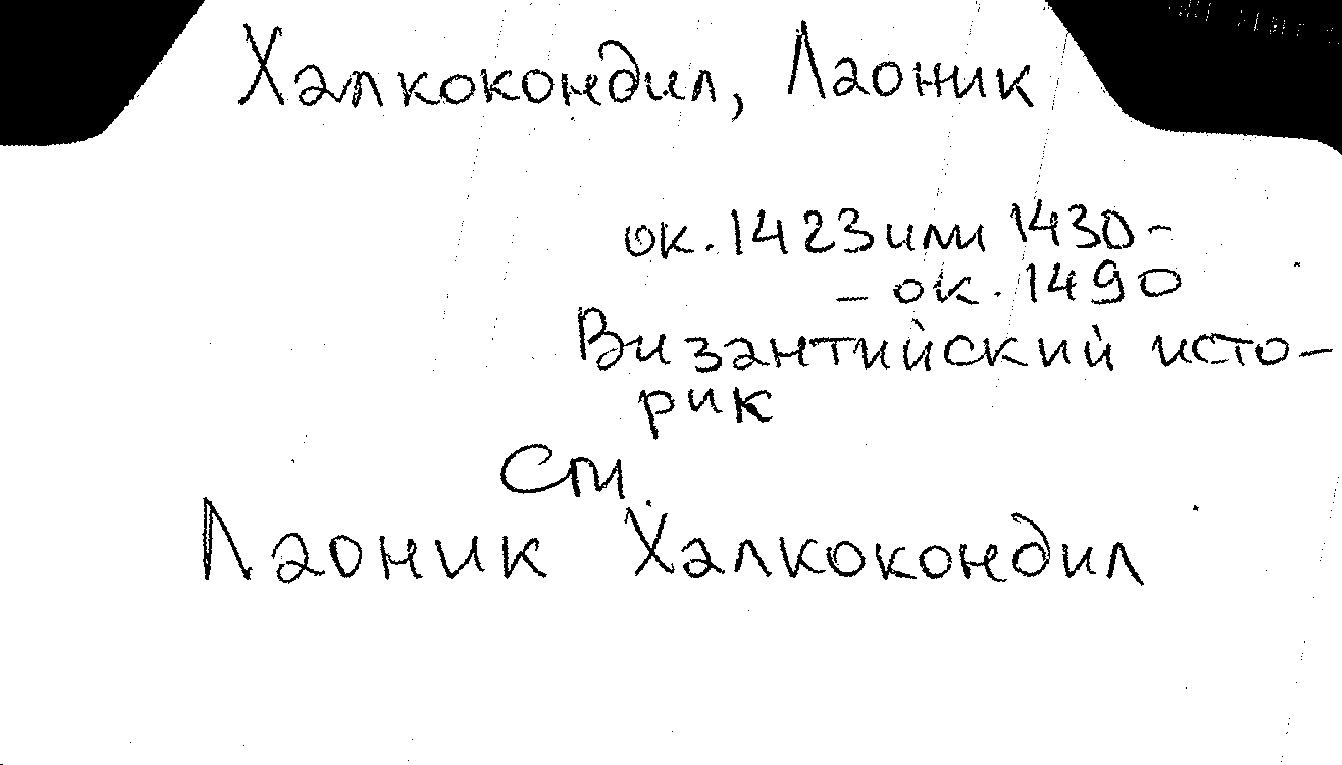 Халкокондил, Лаоник
ок. 1423 или 1430 -
- ок. 1490
Византийский исто-
рик
См.
Лаоник Халкокондил